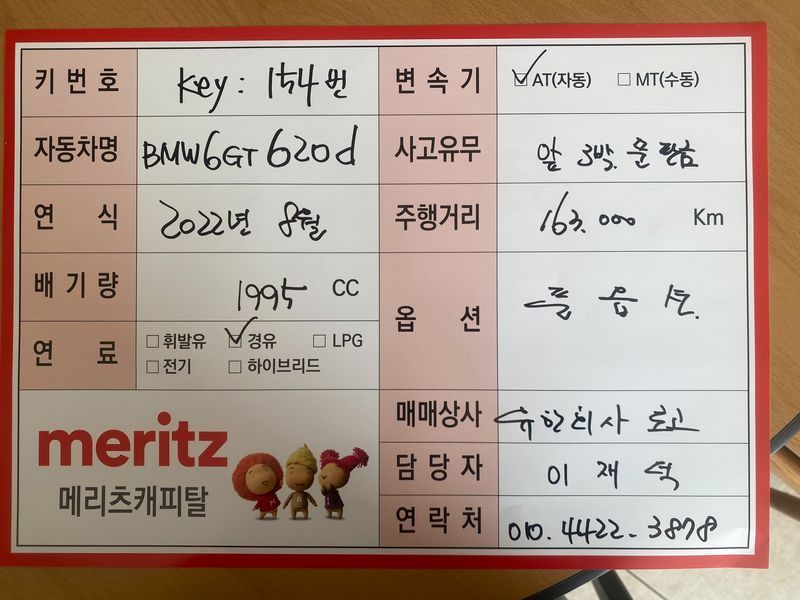 키 번 호 Key : 154번
변 속 기 AT(자동) MT(수동)
자동차명 BMW6GT 620d
사고유무 앞 3박. 문 판금
연 식 2022년 8월
주행거리 163.000 Km
배 기 량 1995 CC
옵 션 풀 옵 션.
연 료 휘발유 경유 LPG
전기 하이브리드
매매상사 유한회사
담 당 자 이 재 석
연 락 처 010. 4422-3878
meritz
메리츠캐피탈